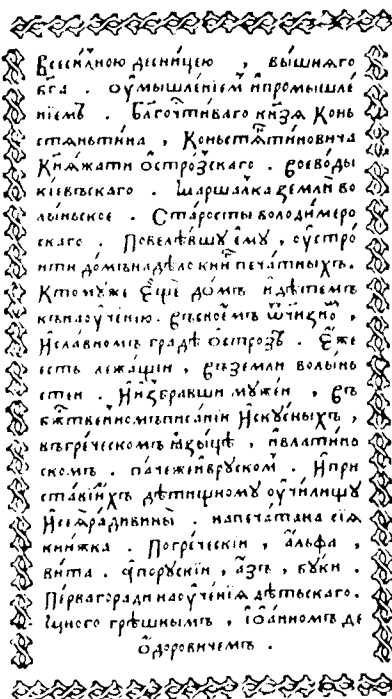 Всеси́лною десни́цею , вы́шняго
бг҃а . оу҆мышле́нїем и҆промышле́
нїемъ . Бл҃гоч҃ти́ваго кн҃зя Конь
стянъти́на , Коньстя҃ти́новича
Кня́жати Ѻ҆стро́зскаго . воево́ды
кі́евъскаго . Маршалка землѝ во
лы́ньское . Ста́росты володи́меро
скаго . Повеле́вшу є҆му̀ , оу҆стро́
ити до́мъ на дѣ́ло кни҃ печа́тныхъ .
К тому́же є҆щѐ до́мъ и҆ дѣ́темъ
къ наоуче́нию . въ своє҆мъ ѿчи́зно ,
И҆ славномъ гра́дѣ Ѻ҆стро́зѣ . Е҆́же
есть лежа́щеи , въ земли волы́нь
стеи . И҆ и҆збравши муже́и , въ
бж҃твенномъ писа́нїи и҆ску́сныхъ ,
въ гре́ческомъ ꙗ҆зы́це , и҆ в лати́нъ
скомъ . па́чеже и҆ в ру́скомъ . И҆ при
ста́ви и҆хъ дѣ́тищному оу҆чи́лищу
И҆ сея̀ ра́ди вины̀ . напеча́тана сїѧ
кни́жка . По гре́чески , а҆́льфа ,
ви́та . а҆ по ру́скїи , а҆́зъ , бу́ки .
Пе́рваго ради наоуче́нїя дѣ́тьскаго .
многогрѣ́шнымъ , Їѡа́нномъ Ѳе
ѻ҆́доровичемъ .